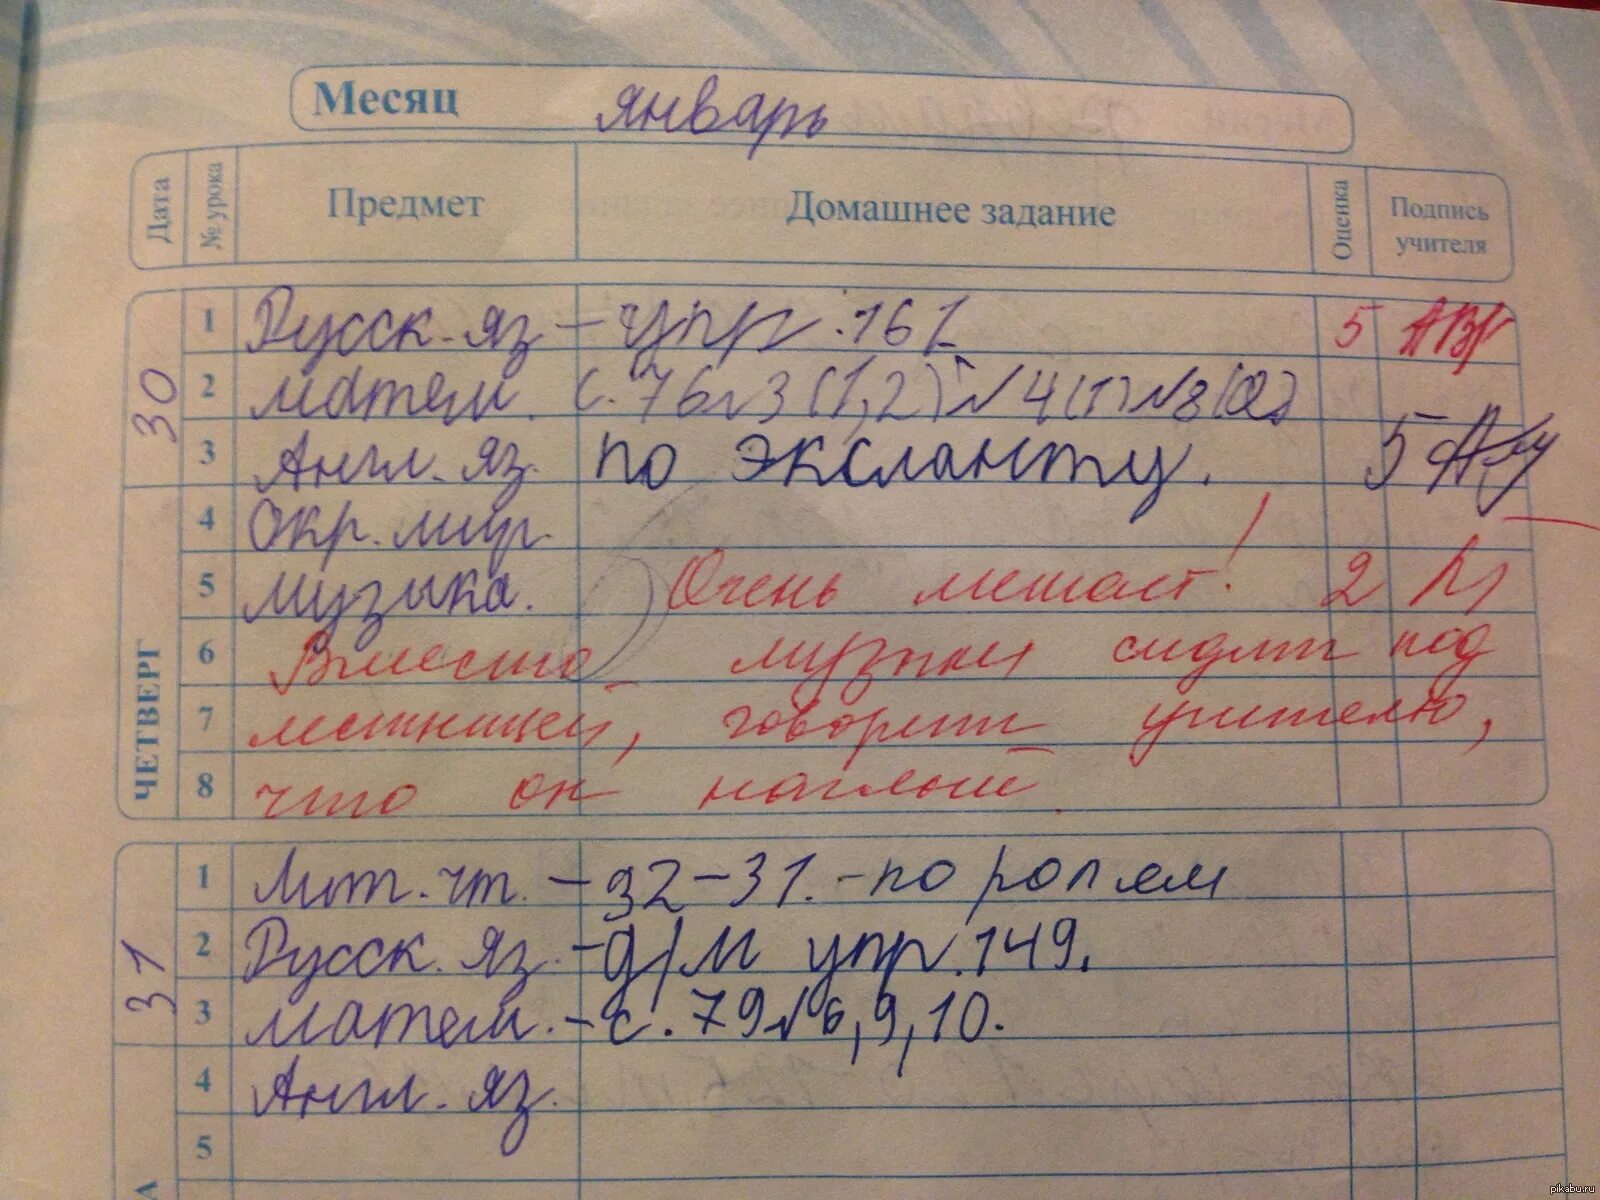 Месяц январь
Дата № урока Предмет Домашнее задание Оценка Подпись учителя
30
ЧЕТВЕРГ
1 Русск. яз – упр. 161 5
2 матем. с. 76 №3(1,2) №4(1) №8(2)
3 Англ. яз. по эксланту. 5
4 Окр. мир.
5 музыка. Очень мешает! 2
6 Вместо музыки сидит под
7 лестницей, говорит учителю,
8 что он наглый.
31
1 Лит. чт. – 32–31. – по ролям
2 Русск. яз. – д/м упр. 149.
3 матем. – с. 79 №6, 9, 10.
4 Англ. яз.
5
А
pikabu.ru